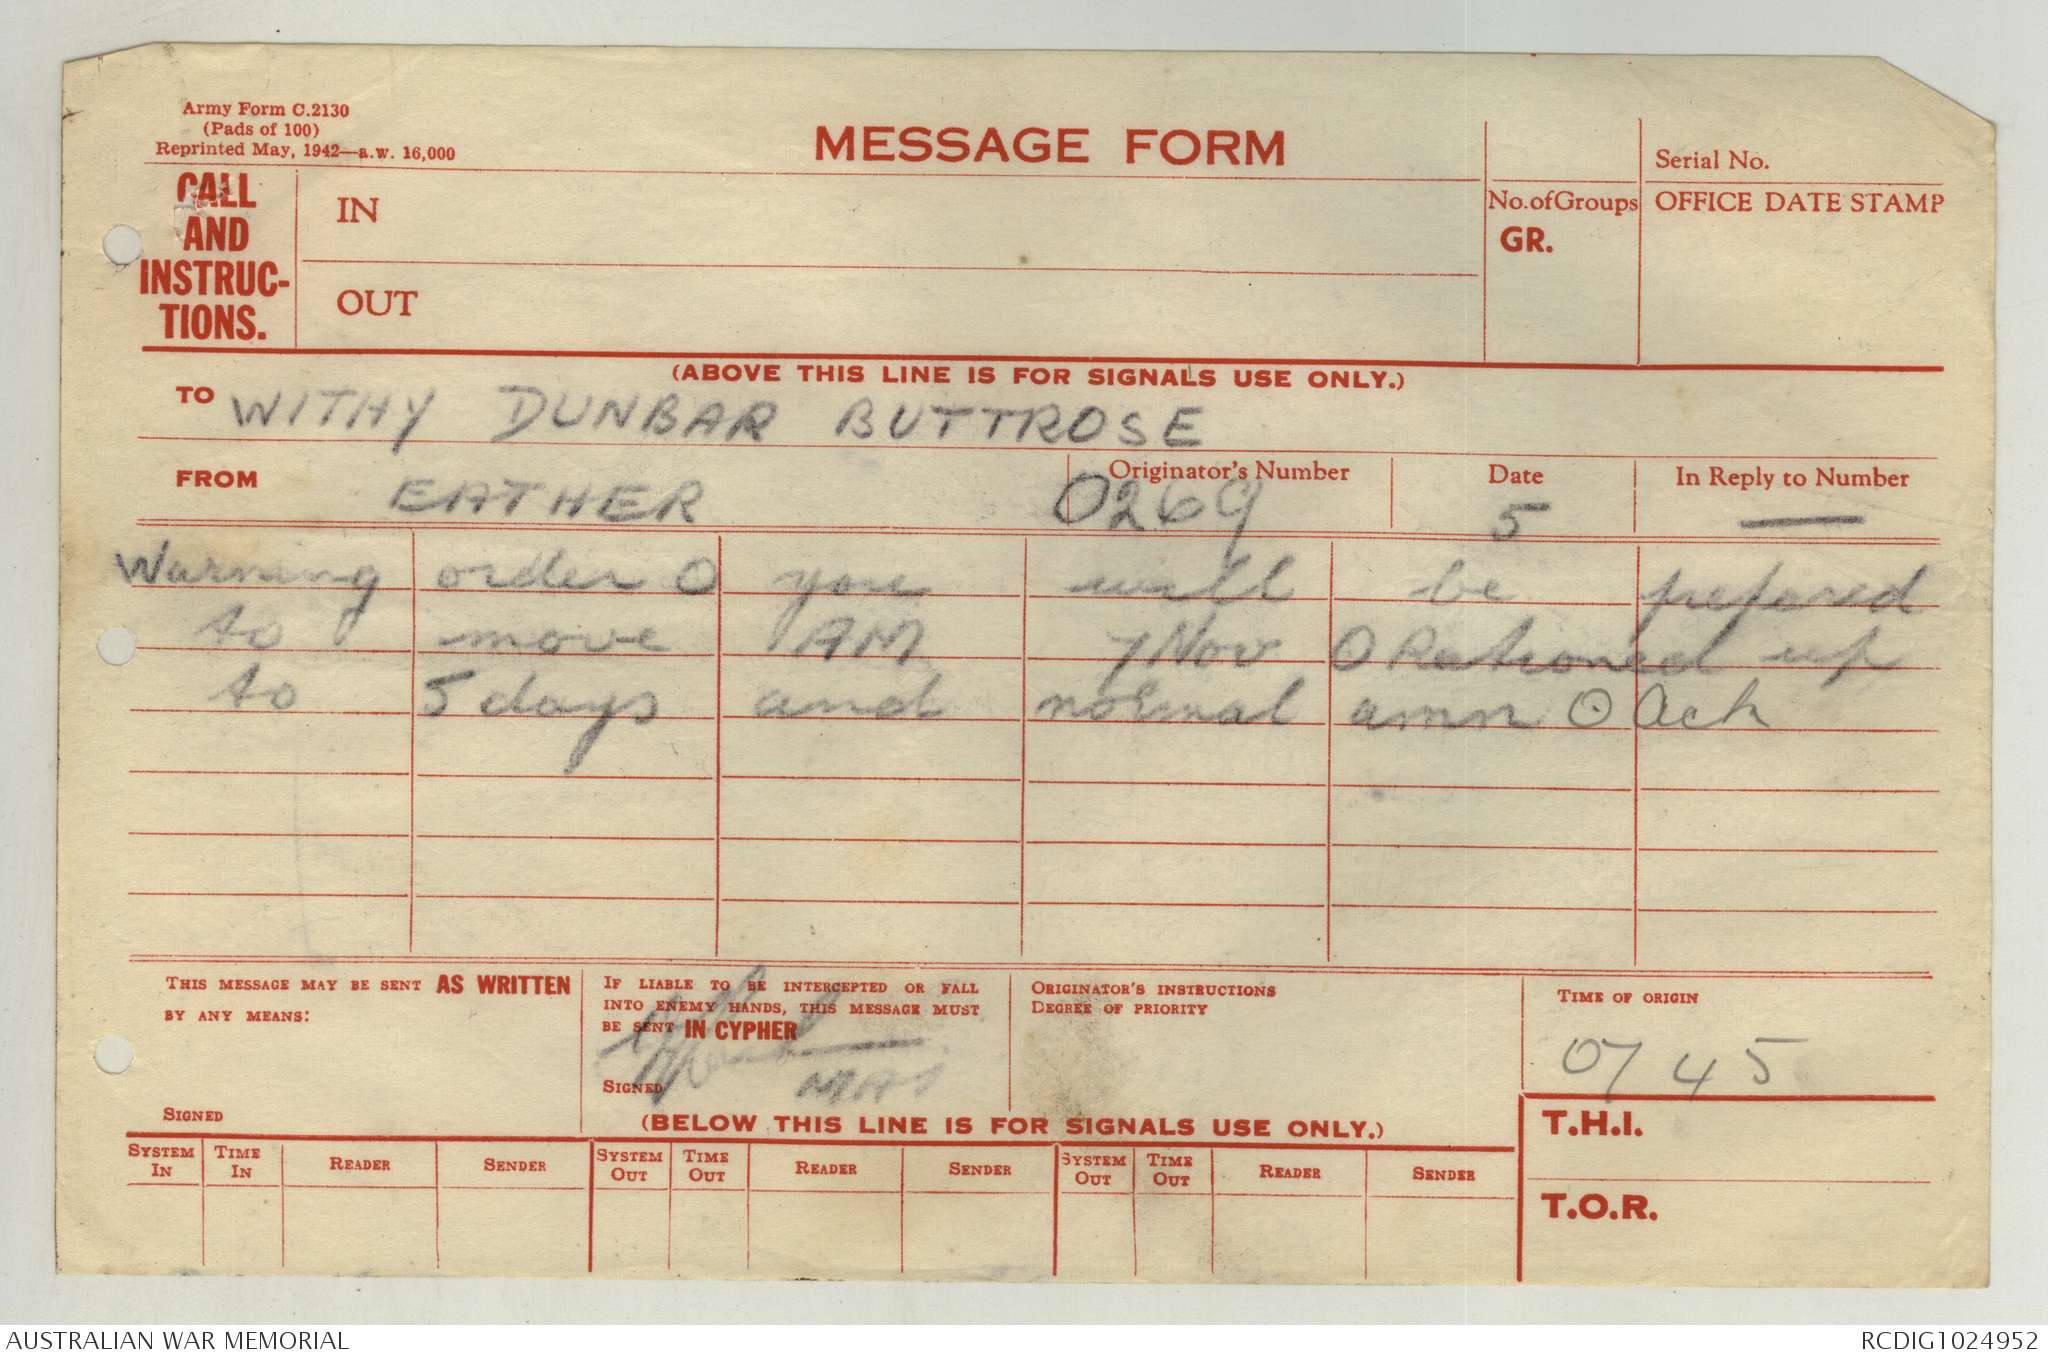 Army Form C.2130
(Pads of 100)
Reprinted May, 1942—a.w. 16,000
MESSAGE FORM
Serial No.
CALL
AND
INSTRUC-
TIONS.
IN
OUT
No. of Groups
GR.
OFFICE DATE STAMP
(ABOVE THIS LINE IS FOR SIGNALS USE ONLY.)
TO WITHY DUNBAR BUTTROSE
FROM EATHER
Originator's Number
0269
Date
5
In Reply to Number
—
Warning order O you will be prepared
to move AM 7 Nov O Rationed up
to 5 days and normal amn O Ack
THIS MESSAGE MAY BE SENT AS WRITTEN
BY ANY MEANS:
SIGNED
IF LIABLE TO BE INTERCEPTED OR FALL
INTO ENEMY HANDS, THIS MESSAGE MUST
BE SENT IN CYPHER
SIGNED
ORIGINATOR'S INSTRUCTIONS
DEGREE OF PRIORITY
TIME OF ORIGIN
0745
(BELOW THIS LINE IS FOR SIGNALS USE ONLY.)
T.H.I.
T.O.R.
SYSTEM IN TIME IN READER SENDER SYSTEM OUT TIME OUT READER SENDER SYSTEM OUT TIME OUT READER SENDER
AUSTRALIAN WAR MEMORIAL
RCDIG1024952